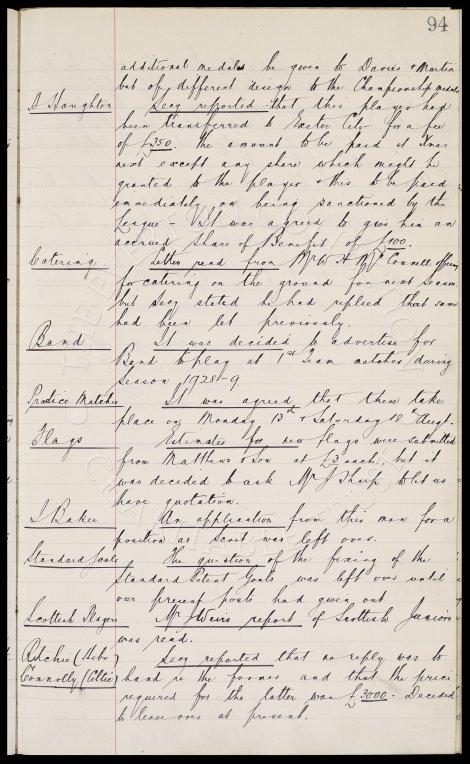 94
additional medals be given to Davies & Martin
but of different design to the Championship medals
A Houghton Secy reported that this player had
been transferred to Exeter City for a fee
of £350. The amount to be paid at Xmas
next except any share which might be
granted to the player & this to be paid
immediately on being sanctioned by the
League. It was agreed to give him an
accrued share of Benefit of £100.
Catering Letter read from Mr W H Mc Connell offering
for catering on the ground for next season
but Secy stated he had replied that same
had been let previously.
Band It was decided to advertise for
Band to play at 1st Team matches during
season 1928-9
Practice Matches It was agreed that these take
place on Monday 13th & Saturday 18th Augt.
Flags Estimates for new flags were submitted
from Matthews & Son at £3 each, but it
was decided to ask Mr J Sharp to let us
have quotation.
J Baker An application from this man for a
position as Scout was left over.
Standard Goals The question of the fixing of the
Standard Patent Goals was left over until
our present posts had given out
Scottish Players Mr Weirs report of Scottish Juniors
was read.
Ritchie (Hibs) Secy reported that no reply was to
Connolly (Celtic) hand re the former and that the price
required for the latter was £3000. Decided
to leave over at present.